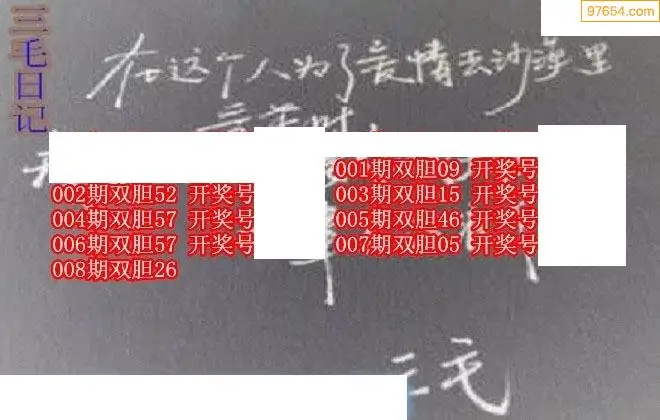 97654.com
三毛日记
在这个人为了爱情去沙漠里
001期双胆09 开奖号
002期双胆52 开奖号
003期双胆15 开奖号
004期双胆57 开奖号
005期双胆46 开奖号
006期双胆57 开奖号
007期双胆05 开奖号
008期双胆26
三毛